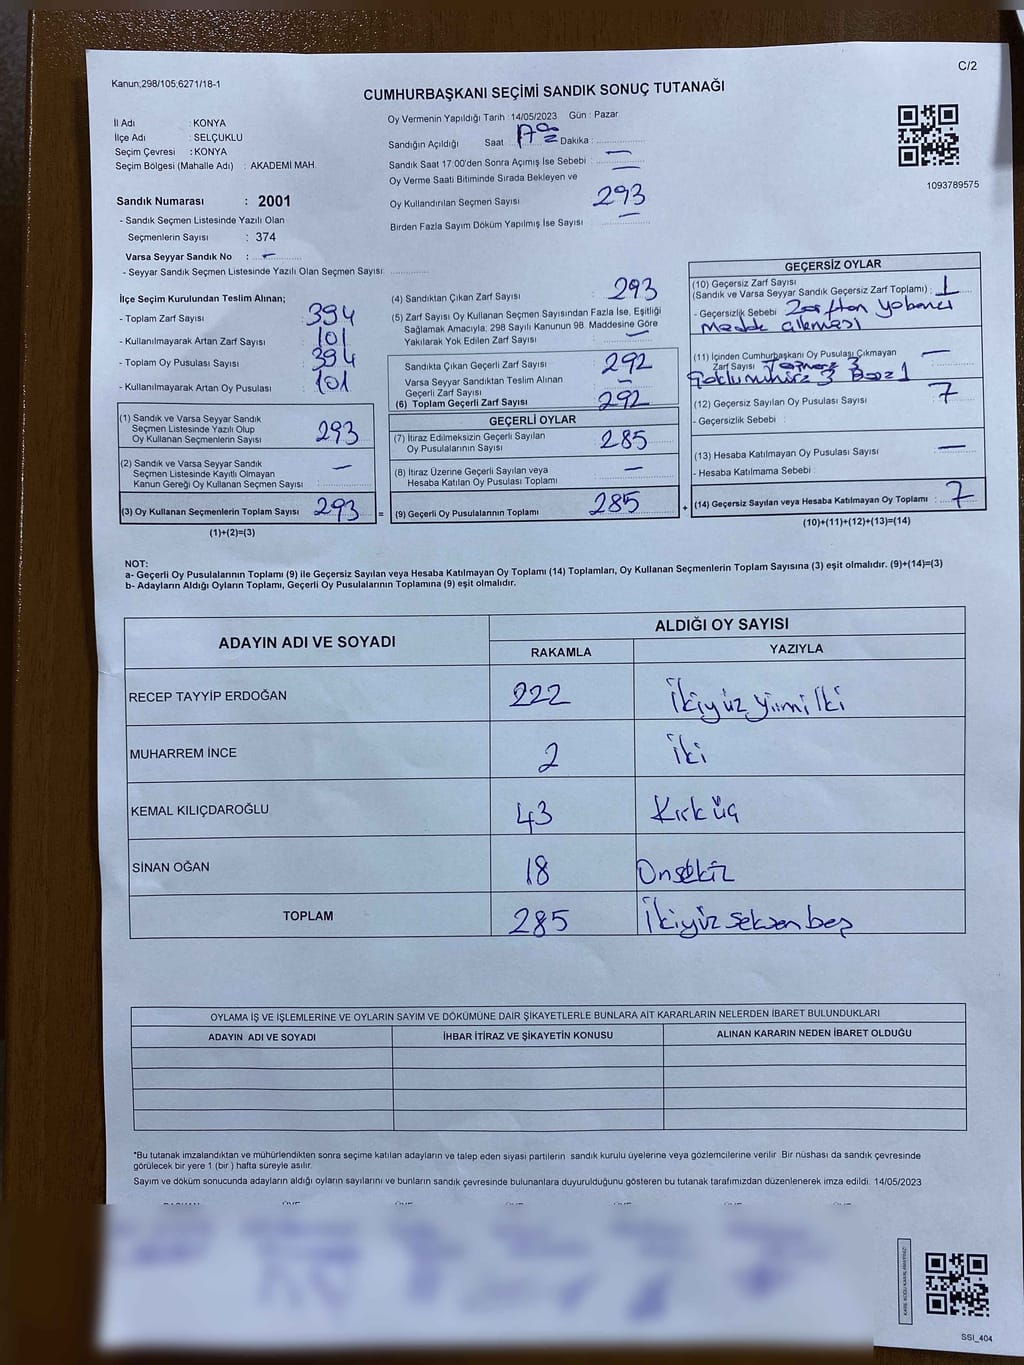 C/2
Kanun;298/105;6271/18-1
CUMHURBAŞKANI SEÇİMİ SANDIK SONUÇ TUTANAĞI
İl Adı : KONYA
İlçe Adı : SELÇUKLU
Seçim Çevresi : KONYA
Seçim Bölgesi (Mahalle Adı) : AKADEMİ MAH.
Sandık Numarası : 2001
- Sandık Seçmen Listesinde Yazılı Olan
Seçmenlerin Sayısı : 374
Varsa Seyyar Sandık No : -
- Seyyar Sandık Seçmen Listesinde Yazılı Olan Seçmen Sayısı:
Oy Vermenin Yapıldığı Tarih : 14/05/2023 Gün : Pazar
Sandığın Açıldığı Saat : 17 00 Dakika :
Sandık Saat 17:00'den Sonra Açımış İse Sebebi : -
Oy Verme Saati Bitiminde Sırada Bekleyen ve -
Oy Kullandırılan Seçmen Sayısı 293
Birden Fazla Sayım Döküm Yapılmış İse Sayısı -
1093789575
İlçe Seçim Kurulundan Teslim Alınan;
- Toplam Zarf Sayısı 394
- Kullanılmayarak Artan Zarf Sayısı 101
- Toplam Oy Pusulası Sayısı 394
- Kullanılmayarak Artan Oy Pusulası 101
(1) Sandık ve Varsa Seyyar Sandık
Seçmen Listesinde Yazılı Olup
Oy Kullanan Seçmenlerin Sayısı 293
(2) Sandık ve Varsa Seyyar Sandık
Seçmen Listesinde Kayıtlı Olmayan -
Kanun Gereği Oy Kullanan Seçmen Sayısı
(3) Oy Kullanan Seçmenlerin Toplam Sayısı 293 =
(1)+(2)=(3)
(4) Sandıktan Çıkan Zarf Sayısı : 293
(5) Zarf Sayısı Oy Kullanan Seçmen Sayısından Fazla İse, Eşitliği
Sağlamak Amacıyla; 298 Sayılı Kanunun 98. Maddesine Göre
Yakılarak Yok Edilen Zarf Sayısı : -
Sandıkta Çıkan Geçerli Zarf Sayısı 292
Varsa Seyyar Sandıktan Teslim Alınan
Geçerli Zarf Sayısı -
(6) Toplam Geçerli Zarf Sayısı 292
GEÇERLİ OYLAR
(7) İtiraz Edilmeksizin Geçerli Sayılan
Oy Pusulalarının Sayısı 285
(8) İtiraz Üzerine Geçerli Sayılan veya
Hesaba Katılan Oy Pusulası Toplamı -
(9) Geçerli Oy Pusulalarının Toplamı 285 +
GEÇERSİZ OYLAR
(10) Geçersiz Zarf Sayısı
(Sandık ve Varsa Seyyar Sandık Geçersiz Zarf Toplamı) : 1
- Geçersizlik Sebebi Zarftan yabancı
madde çıkması
(11) İçinden Cumhurbaşkanı Oy Pusulası Çıkmayan -
Zarf Sayısı 3
3 1
(12) Geçersiz Sayılan Oy Pusulası Sayısı 7
- Geçersizlik Sebebi
(13) Hesaba Katılmayan Oy Pusulası Sayısı -
- Hesaba Katılmama Sebebi :
(14) Geçersiz Sayılan veya Hesaba Katılmayan Oy Toplamı : 7
(10)+(11)+(12)+(13)=(14)
NOT:
a- Geçerli Oy Pusulalarının Toplamı (9) ile Geçersiz Sayılan veya Hesaba Katılmayan Oy Toplamı (14) Toplamları, Oy Kullanan Seçmenlerin Toplam Sayısına (3) eşit olmalıdır. (9)+(14)=(3)
b- Adayların Aldığı Oyların Toplamı, Geçerli Oy Pusulalarının Toplamına (9) eşit olmalıdır.
ADAYIN ADI VE SOYADI ALDIĞI OY SAYISI
RAKAMLA YAZIYLA
RECEP TAYYİP ERDOĞAN 222 İkiyüz yirmi İki
MUHARREM İNCE 2 İki
KEMAL KILIÇDAROĞLU 43 Kırk üç
SİNAN OĞAN 18 Onsekiz
TOPLAM 285 İkiyüz seksen beş
OYLAMA İŞ VE İŞLEMLERİNE VE OYLARIN SAYIM VE DÖKÜMÜNE DAİR ŞİKAYETLERLE BUNLARA AİT KARARLARIN NELERDEN İBARET BULUNDUKLARI
ADAYIN ADI VE SOYADI İHBAR İTİRAZ VE ŞİKAYETİN KONUSU ALINAN KARARIN NEDEN İBARET OLDUĞU
*Bu tutanak imzalandıktan ve mühürlendikten sonra seçime katılan adayların ve talep eden siyasi partilerin sandık kurulu üyelerine veya gözlemcilerine verilir. Bir nüshası da sandık çevresinde
görülecek bir yere 1 (bir ) hafta süreyle asılır.
Sayım ve döküm sonucunda adayların aldığı oyların sayılarını ve bunların sandık çevresinde bulunanlara duyurulduğunu gösteren bu tutanak tarafımızdan düzenlenerek imza edildi. 14/05/2023
SSI_404